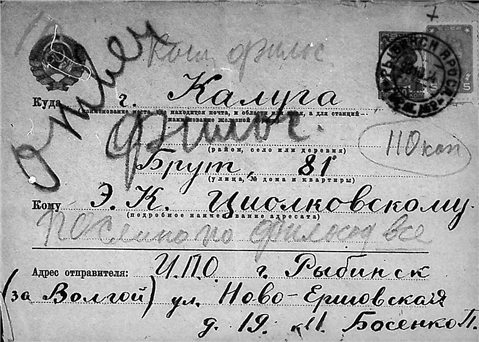 ответ
Кош филос
Куда г. Калуга
наименование места, где находится почта, и области или края, а для станций—
наименование железной
Филос.
(район, село или деревня)
110 коп
Брут, 81
(улица, № дома и квартиры)
Кому Э. К. Циолковскому.
(подробное наименование адресата)
все
Адрес отправителя: И.П.О г. Рыбинск
(за Волгой) ул. Ново-Ершовская
д. 19. к 11 Босенко П.